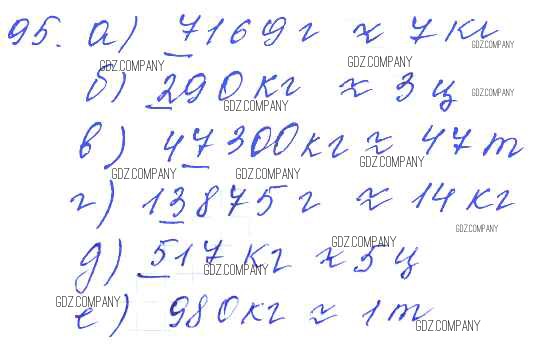 95. а) 7169 г ≈ 7 кг
GDZ.COMPANY
GDZ.COMPANY GDZ.COMPANY
б) 290 кг ≈ 3 ц
GDZ.COMPANY GDZ.COMPANY
в) 47300 кг ≈ 47 т
GDZ.COMPANY GDZ.COMPANY GDZ.COMPANY
г) 13875 г ≈ 14 кг
GDZ.COMPANY
д) 517 кг ≈ 5 ц
GDZ.COMPANY GDZ.COMPANY
е) 980 кг ≈ 1 т
GDZ.COMPANY GDZ.COMPANY